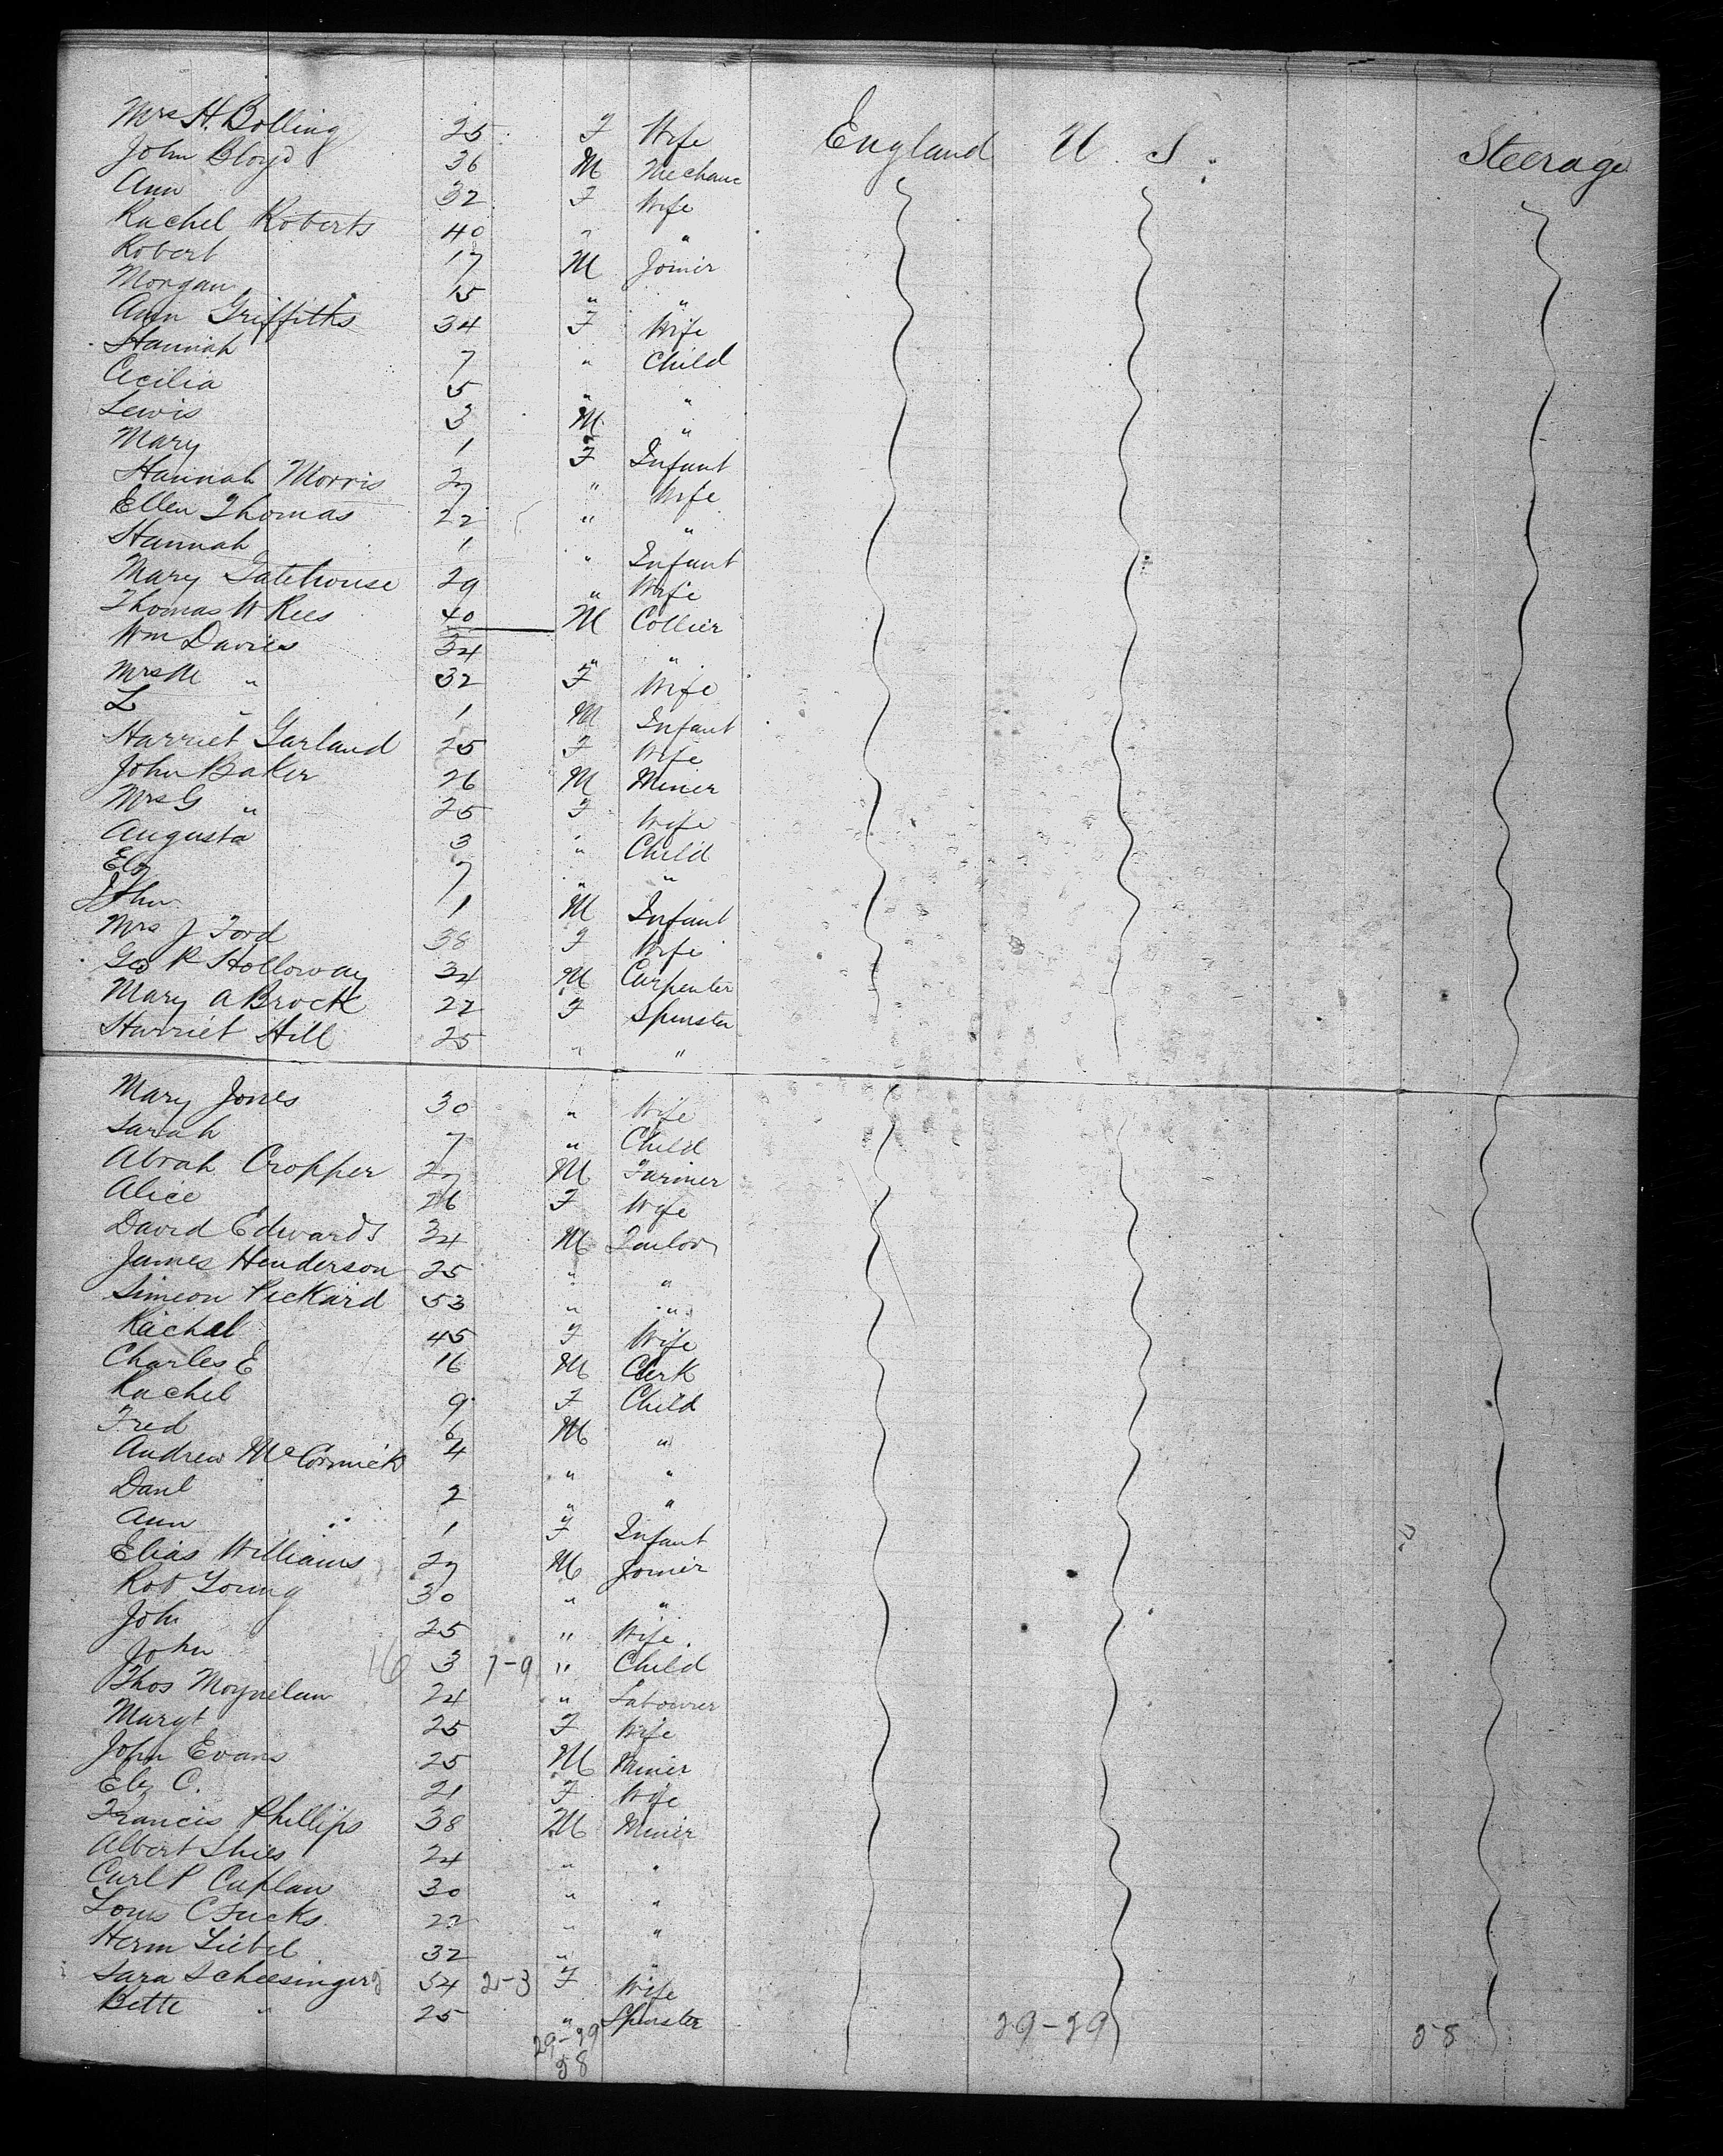 Mrs H. Bolling 25 F Wife England U. S. Steerage
John Bloyd 36 M Mechanc
Ann 32 F Wife
Rachel Roberts 40 " "
Robert 17 M Joiner
Morgan 15 " "
Ann Griffiths 34 F Wife
Hannah 7 " Child
Cecilia 5 " "
Lewis 3 M "
Mary 1 F Infant
Hannah Morris 27 " Wife
Ellen Thomas 22 " "
Hannah 1 " Infant
Mary Gatehouse 29 " Wife
Thomas W Rees 40 M Collier
Wm Davies 34 " "
Mrs M " 32 F Wife
L " 1 M Infant
Harriet Garland 25 F Wife
John Baker 26 M Miner
Mrs G " 25 F Wife
Augusta 3 " Child
Elz 7 " "
John 1 M Infant
Mrs J Ford 38 F Wife
Geo R Holloway 34 M Carpenter
Mary A Brock 22 F Spinster
Harriet Hill 25 " "
Mary Jones 30 " Wife
Sarah 7 " Child
Abrah Cropper 27 M Farmer
Alice 26 F Wife
David Edwards 34 M Tailor
James Henderson 25 " "
Simeon Pickard 53 " "
Rachel 45 F Wife
Charles E 16 M Clerk
Rachel 9 F Child
Fred 6 M "
Andrew McCormick 4 " "
Danl 2 " "
Ann " 1 F Infant
Elias Williams 27 M Joiner
Rob Young 30 " "
John 25 " Wife.
John 16 3 7-9 " Child
Thos 24 " Labourer
Margt 25 F Wife
John Evans 25 M Miner
Elz C. 21 F Wife
Francis Phillips 38 M Miner
Albert 24 " "
Carl P Caplan 30 " "
Louis C Fucks 22 " "
Herm Liebel 32 " "
Sara Scheesinger 54 25-3 F Wife
Bette " 25 " Spinster
29-29 29-29 58
58